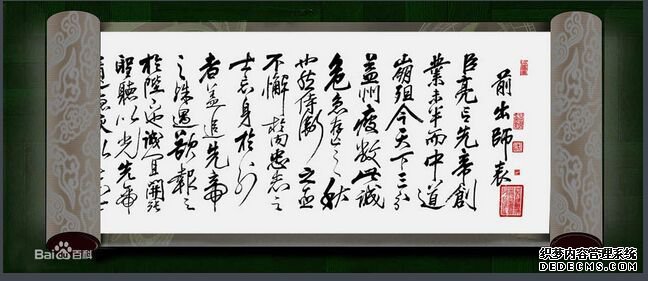 前出師表
臣亮言先帝創
業未半而中道
崩殂今天下三分
益州疲敝此誠
危急存亡之秋
也然侍衛之臣
不懈於内忠志之
士忘身於外
者蓋追先帝
之殊遇欲報之
於陛下也誠宜開張
聖聽以光先帝
Bai百科
织梦内容管理系统
DEDECMS.COM